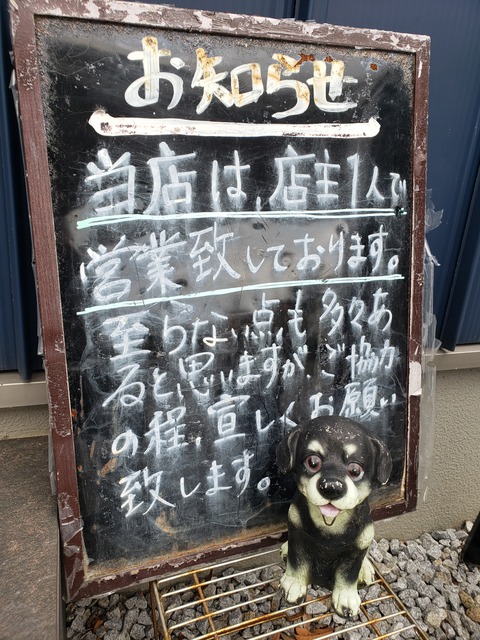 お知らせ
当店は、店主1人で
営業致しております。
至らない点も多々あ
ると思いますがご協力
の程、宜しくお願い
致します。